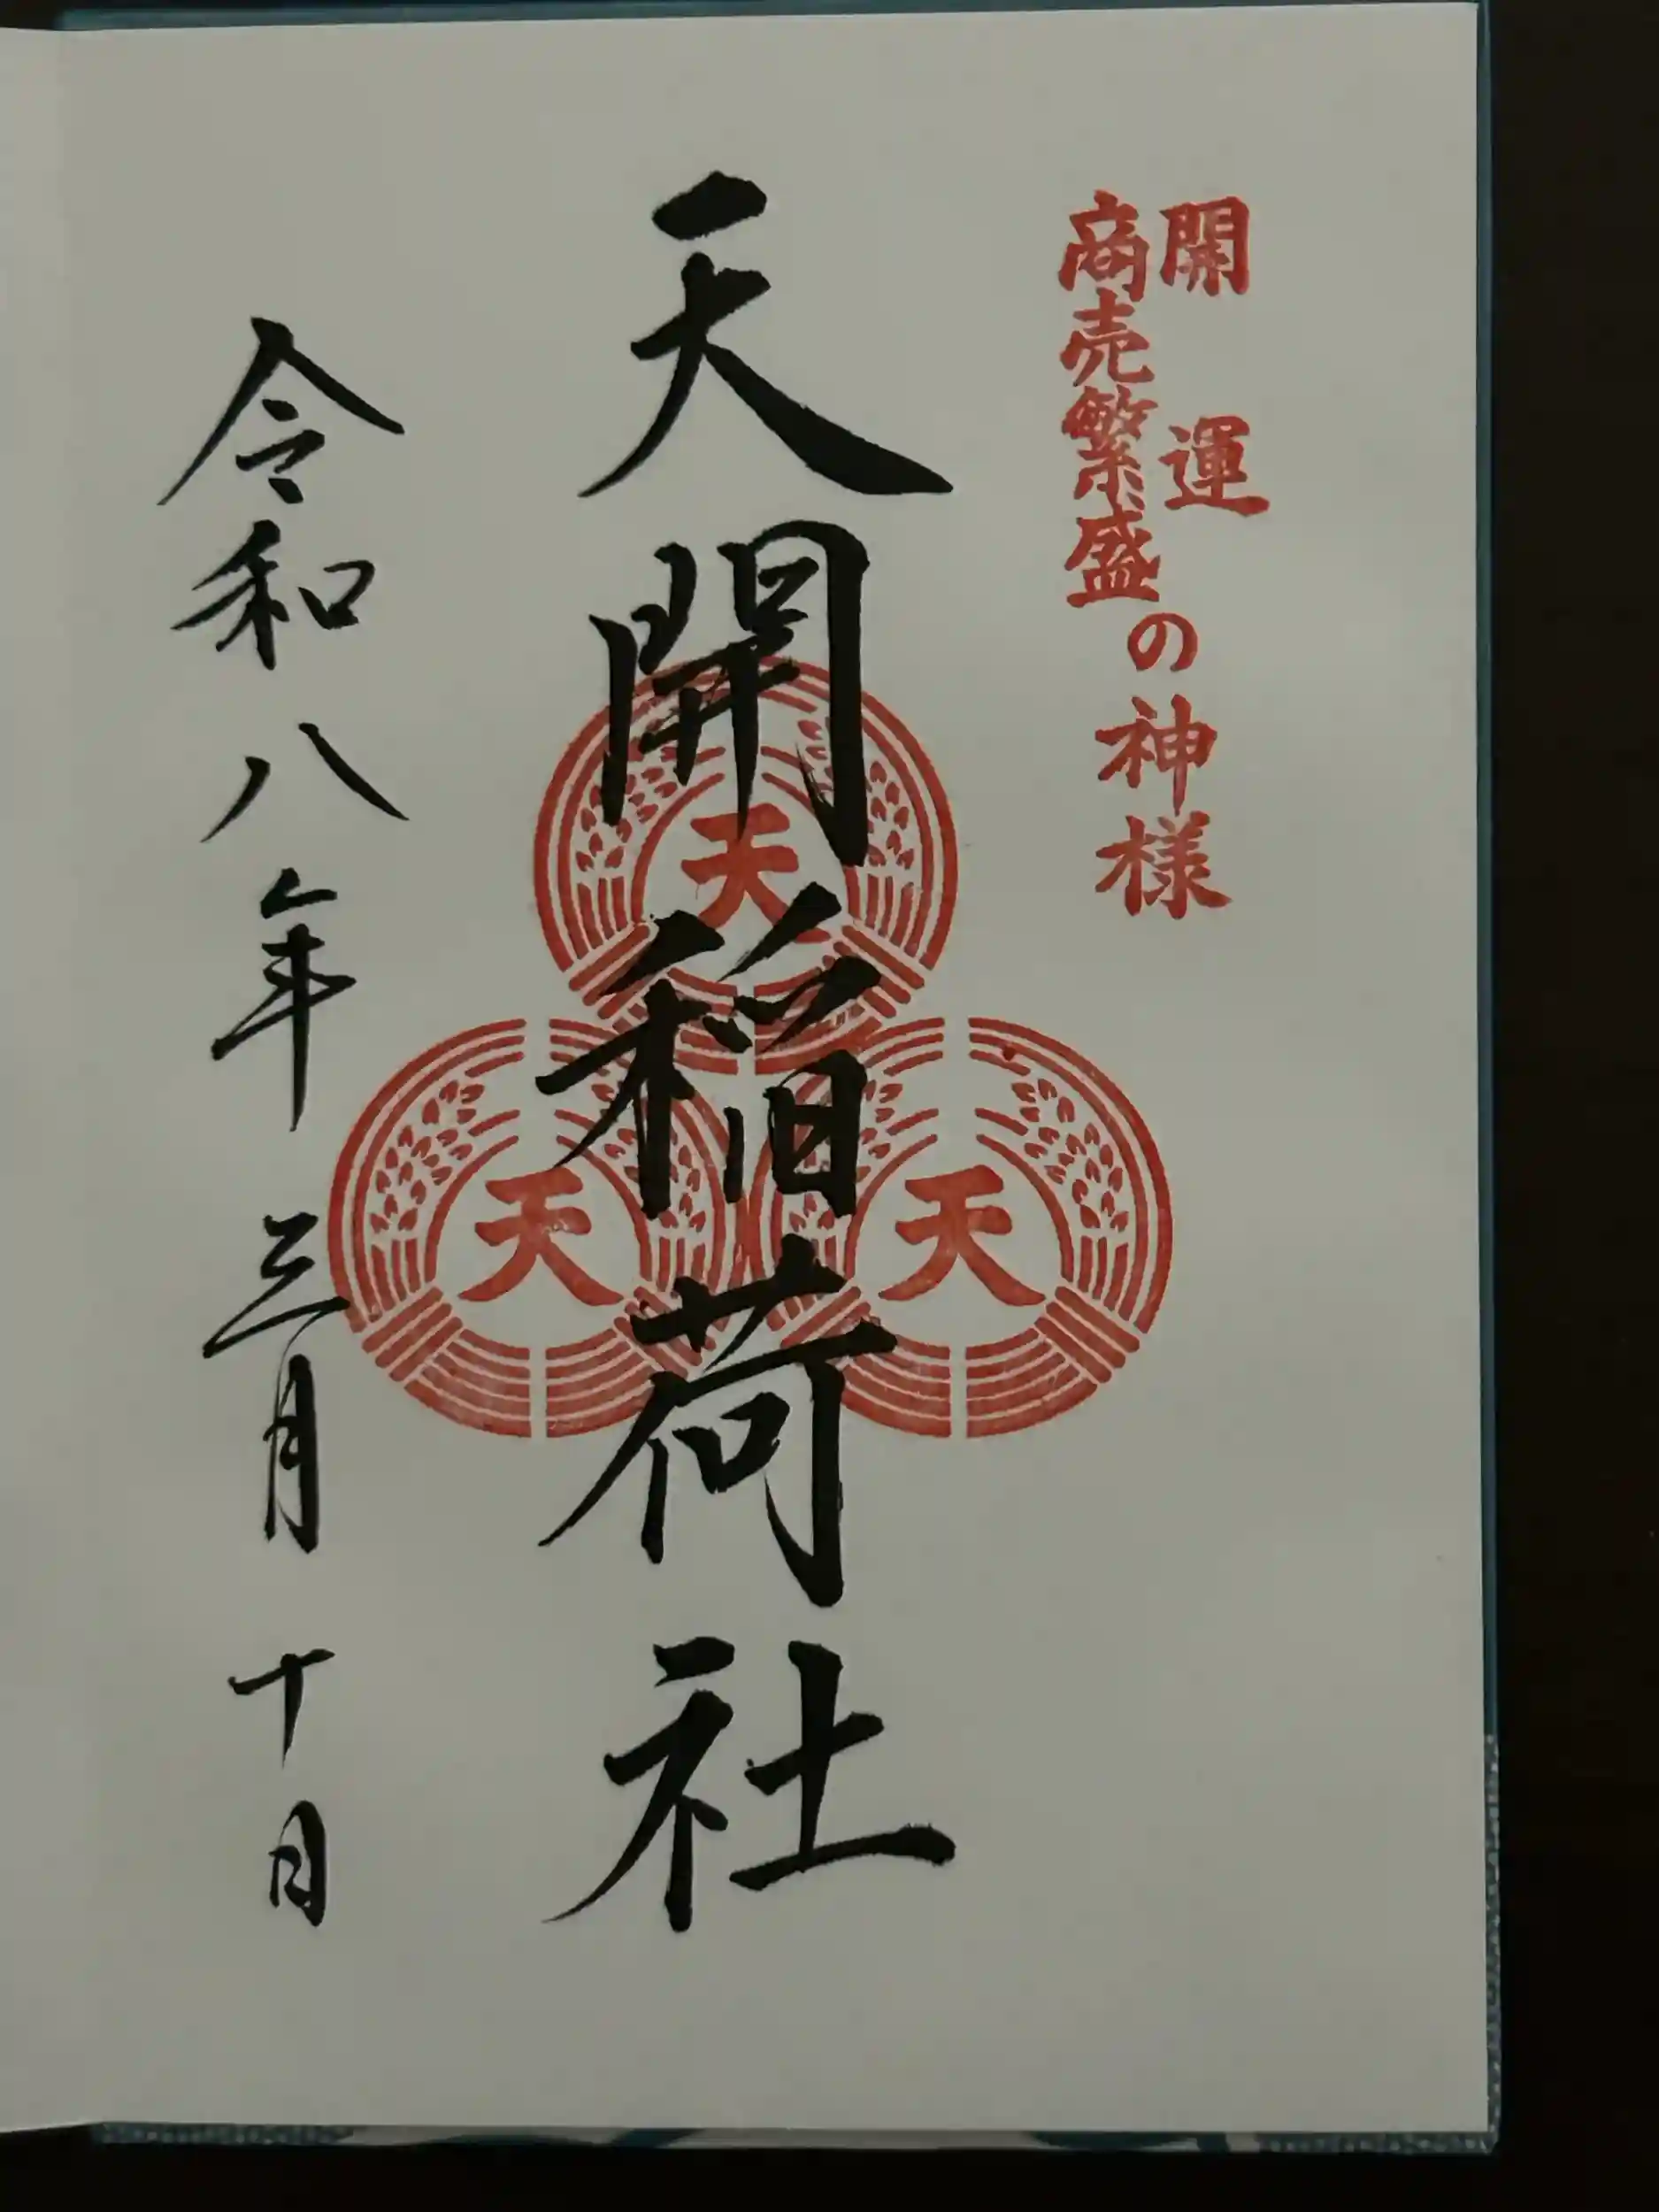 開運
商売繁盛
の神様
天開稲荷社
天
天
天
令和八年三月十日